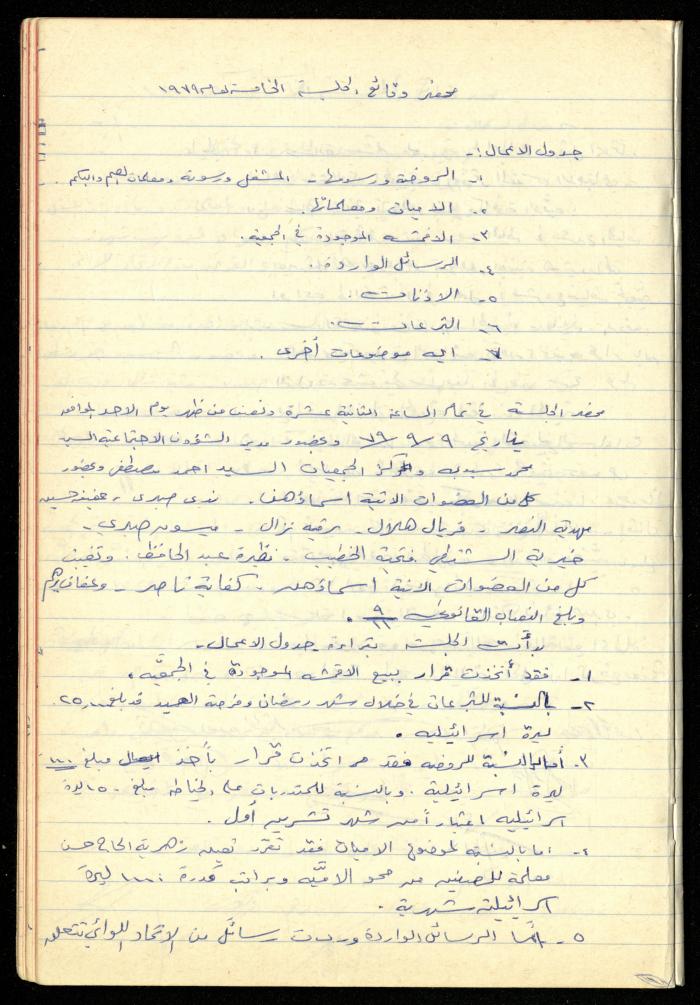 محضر وقائع الجلسة الخامسة لعام ١٩٧٩
جدول الاعمال :-
١- الروضة ورسومها - المشغل ورسومه ومعلمات الصم والبكم .
٢- الاميات ومعلماتها.
٣- الاقمشه الموجودة في الجمعية .
٤- الرسائل الواردة .
٥- الاذنات .
٦- التبرعات .
٧- ايه موضوعات أخرى .
محضر الجلسة في تمام الساعة الثانية عشرة ونصف من ظهر يوم الاحد الموافق
بتاريخ ٩ / ٩ / ٧٩ وبحضور مدير الشؤون الاجتماعية السيد
محمد ومركز الجمعيات السيد احمد مصطفى وبحضور
كل من العضوات الاتية اسماؤهن . ندى صبري - عفيفة حسين
مهدية النصر - فريال هلال - رقيه نزال - ميسون صبري -
خيرية الشنطي فتحية الخطيب - نظيرة عبد الحافظ . وتغيبت
كل من العضوات الاتية اسماؤهن - كفاية ناصر - وعفاف
وبلغ النصاب القانوني ٩/١١ .
بدأت الجلسة بقراءة جدول الاعمال -
١- فقد أتخذت قرار ببيع الاقمشه الموجودة في الجمعيّه .
٢- بالنسبة للتبرعات في خلال شهر رمضان وفرحة العيد قد بلغ
ليرة اسرائيليه .
٣- أما بالنسبة للروضه فقد اتخذت قرار بأخذ مبلغ ١٠٠
ليرة اسرائيلية . وبالنسبة للمتدربات على الخياطه مبلغ ١٥٠ ليرة
اسرائيليه اعتباراً من شهر تشرين أول .
٤- اما بالنسبه لموضوع الاميات فقد تقرر تعيين زهرية الحاج حسن
معلمة للصفين من محو الاميَّه وبراتب قدره ١٠٠٠ ليرة
اسرائيلية شهرية .
٥- أمّا الرسائل الواردة وردت رسائل من الاتحاد اللوائي تتعلق